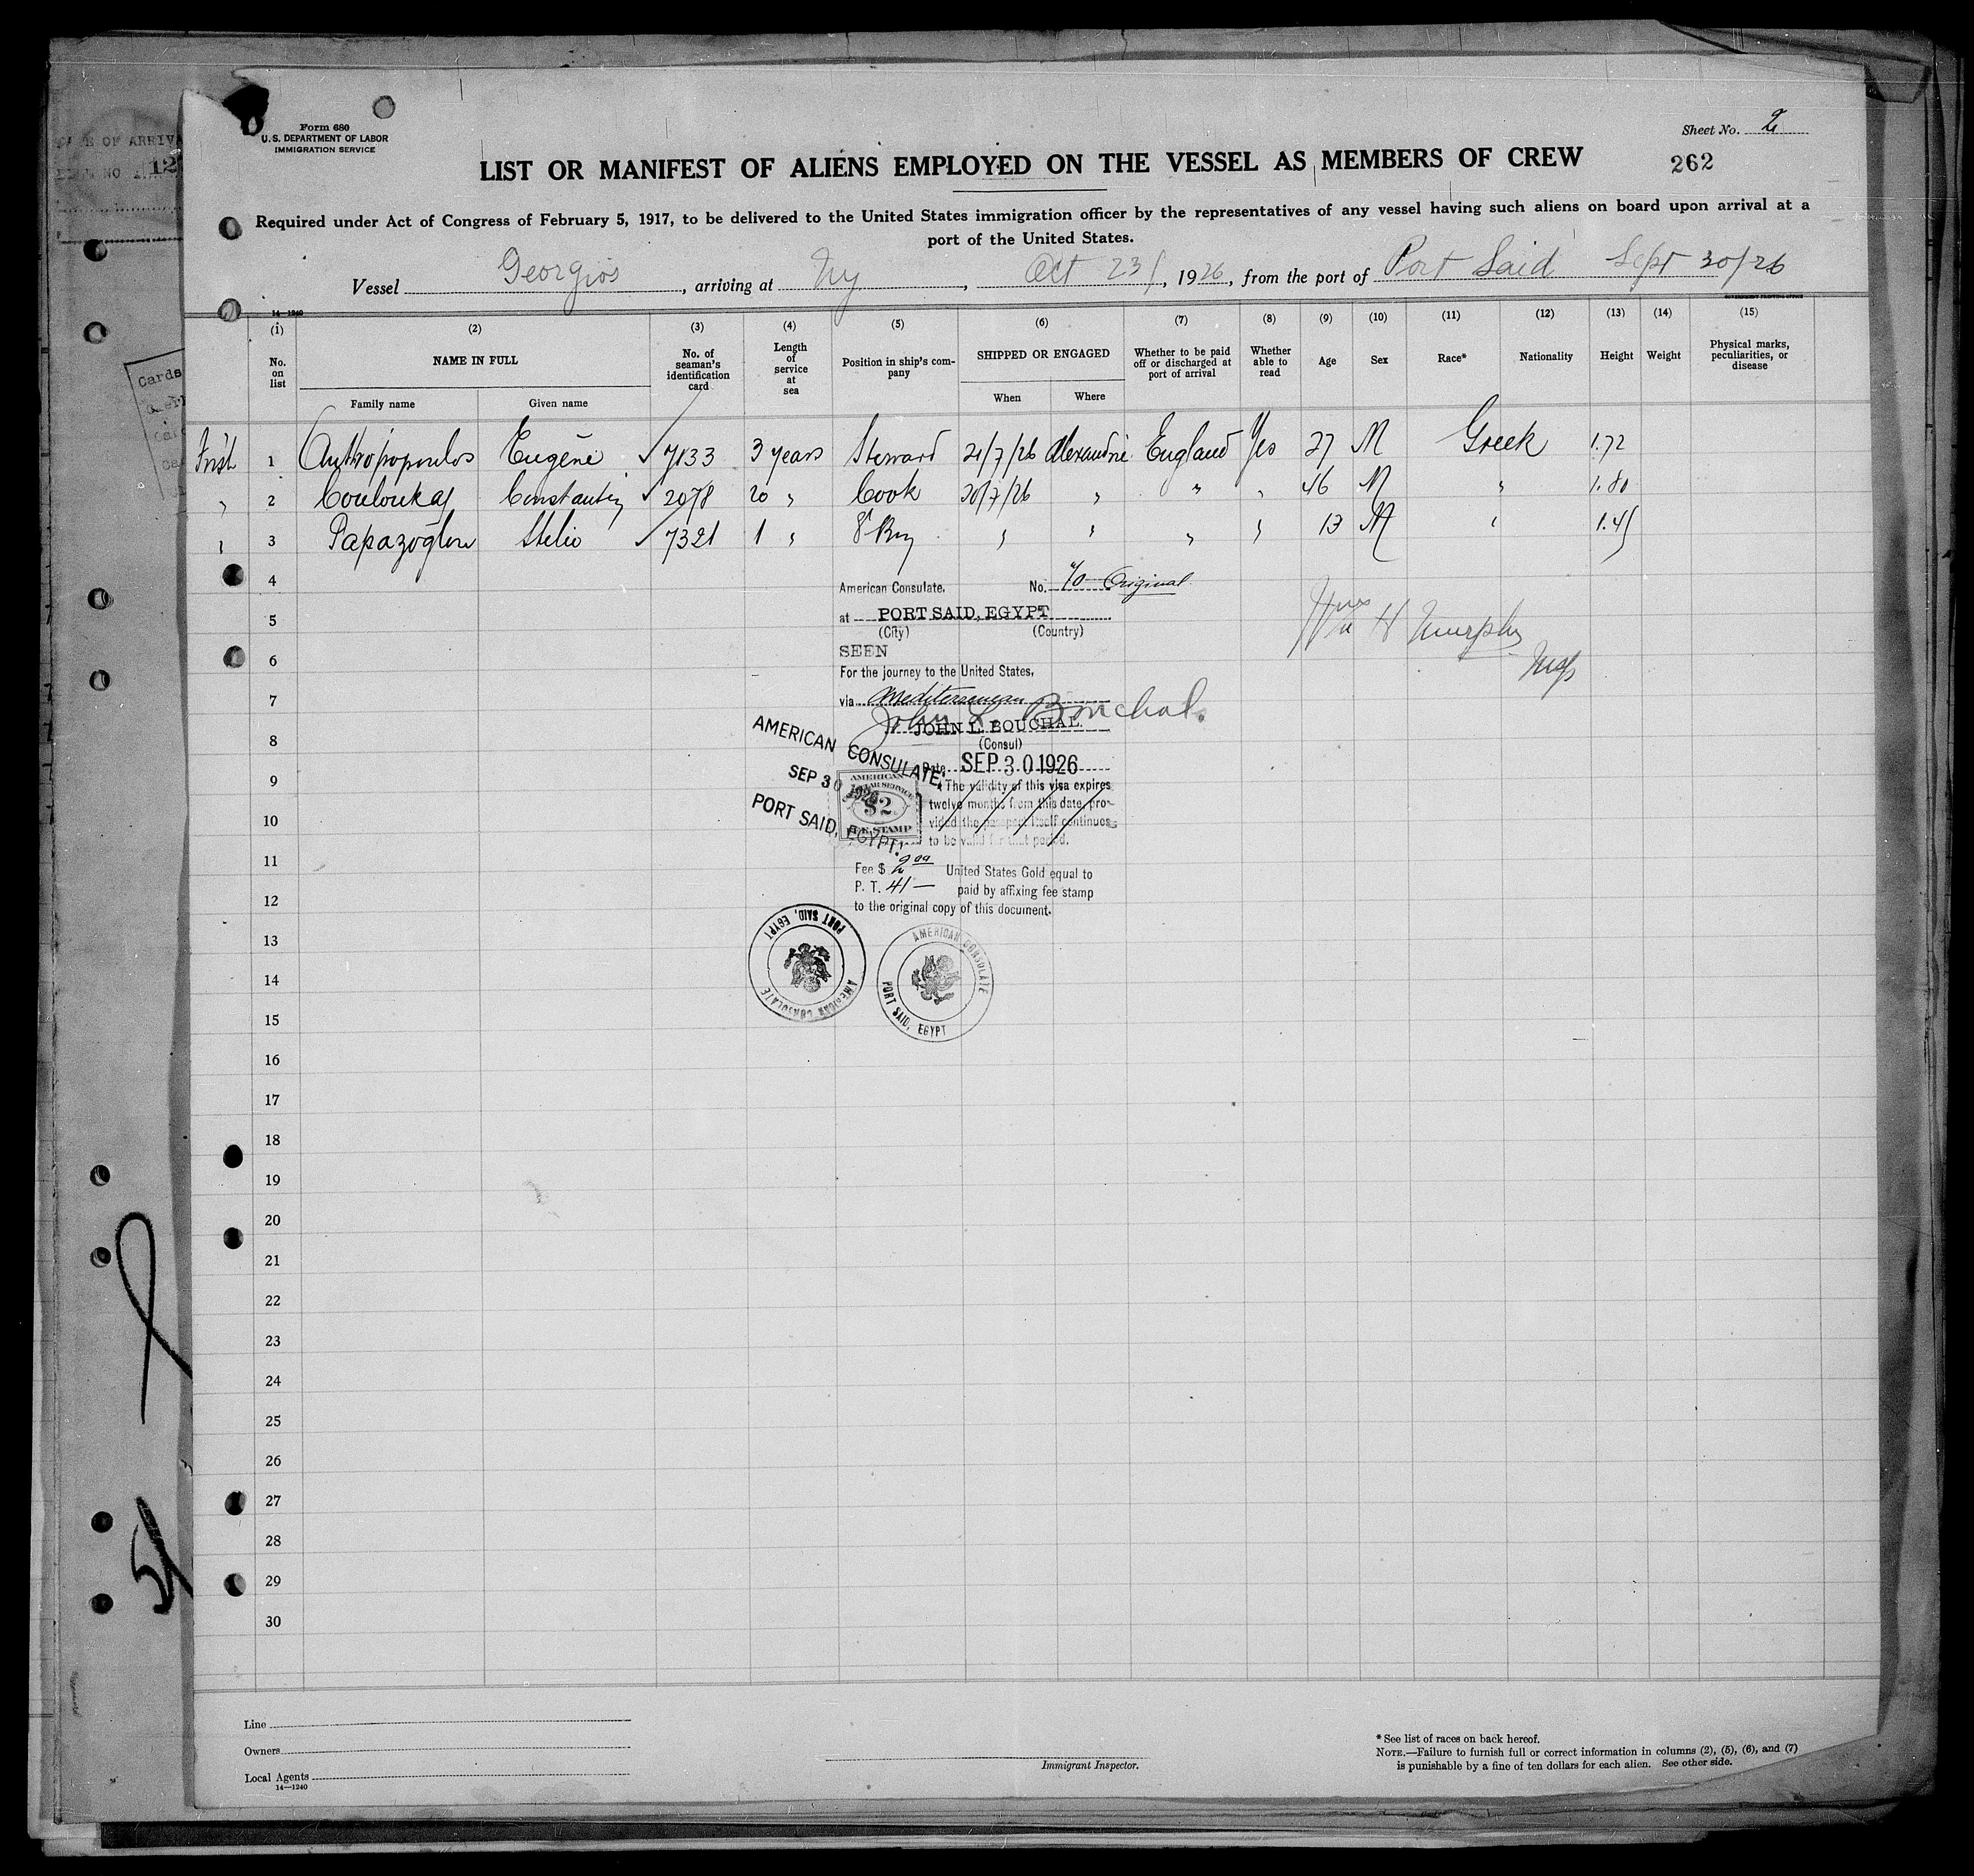 Form 680
U.S. DEPARTMENT OF LABOR
IMMIGRATION SERVICE
Sheet No. 2
262
LIST OR MANIFEST OF ALIENS EMPLOYED ON THE VESSEL AS MEMBERS OF CREW
Required under Act of Congress of February 5, 1917, to be delivered to the United States immigration officer by the representatives of any vessel having such aliens on board upon arrival at a
port of the United States.
Vessel Georgios, arriving at Ny, Oct 23, 1926, from the port of Port Said Sept 30/26
14—1240
(1) (2) (3) (4) (5) (6) (7) (8) (9) (10) (11) (12) (13) (14) (15)
No. on list
NAME IN FULL
Family name
Given name
No. of seaman's identification card
Length of service at sea
Position in ship's company
SHIPPED OR ENGAGED
When
Where
Whether to be paid off or discharged at port of arrival
Whether able to read
Age
Sex
Race*
Nationality
Height
Weight
Physical marks, peculiarities, or disease
First 1 Anthropopoulos Eugène 7133 3 years Steward 21/7/26 Alexandrie England Yes 27 M Greek 1.72
" 2 Couloukas Constantin 2078 20 " Cook 30/7/26 " " " 46 M " 1.80
" 3 Papazoglou Stelio 7321 1 " Boy " " " " 13 M " 1.45
4
American Consulate.
No. 70 Original
5
at PORT SAID, EGYPT
(City) (Country)
Wm H Murphy
6
SEEN
For the journey to the United States,
7
via Mediterranean
John L. Bouchal.
JOHN L. BOUCHAL
8
(Consul)
AMERICAN CONSULATE,
SEP 30 1926
PORT SAID, EGYPT.
Date SEP 30 1926
9
The validity of this visa expires
twelve months from this date, pro-
vided the passport itself continues
to be valid for that period.
AMERICAN
CONSULAR SERVICE
$2
FEE STAMP
10
11
Fee $ 2.00 United States Gold equal to
P. T. 41— paid by affixing fee stamp
to the original copy of this document.
12
AMERICAN CONSULATE
PORT SAID, EGYPT
AMERICAN CONSULATE
PORT SAID, EGYPT
13
14
15
16
17
18
19
20
21
22
23
24
25
26
27
28
29
30
Line
Owners
Local Agents
14—1240
Immigrant Inspector.
* See list of races on back hereof.
NOTE.—Failure to furnish full or correct information in columns (2), (5), (6), and (7)
is punishable by a fine of ten dollars for each alien. See other side.